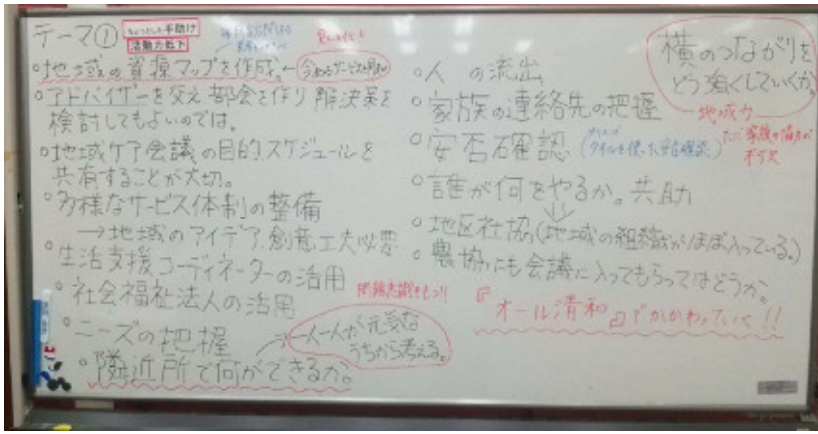 テーマ① ちょっとした手助け
活動力低下
見える化
・地域の資源マップを作成。←
・アドバイザーを交え部会を作り解決策を
検討してもよいのでは。
・地域ケア会議の目的、スケジュールを
共有することが大切。
・多様なサービス体制の整備
→地域のアイデア、創意工夫必要
・生活支援コーディネーターの活用
・社会福祉法人の活用
問題意識をもつ!!
・ニーズの把握
・隣近所で何ができるか。
→一人一人が元気な
うちから考える。
・人 の流出
・家族の連絡先の把握
・安否確認
・誰が何をやるか。共助
・地区社協(地域の組織がほぼ入っている。)
・農協にも会議に入ってもらってはどうか。
『オール清和』でかかわっていく!!
横のつながりを
どう強くしていくか。
地域力
ただ家族の協力が
不可欠